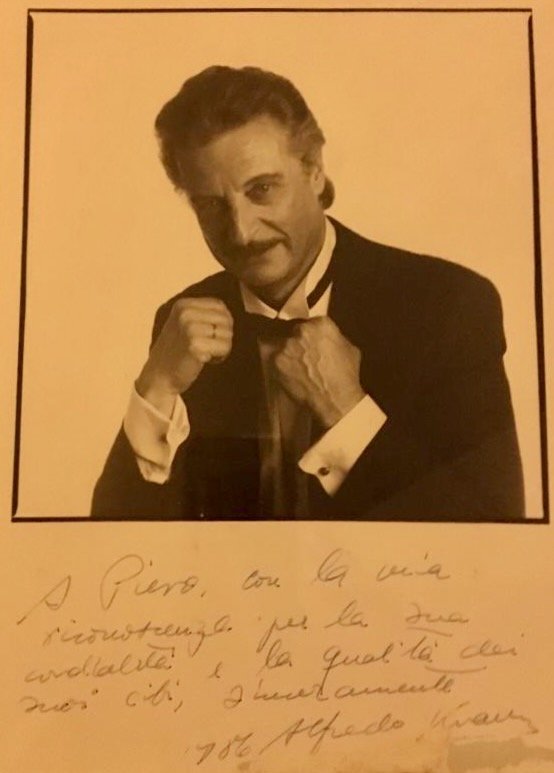 A Piero, con la mia
riconoscenza per la sua
cordialità e la qualità dei
suoi cibi, sinceramente
'986 Alfredo Kraus